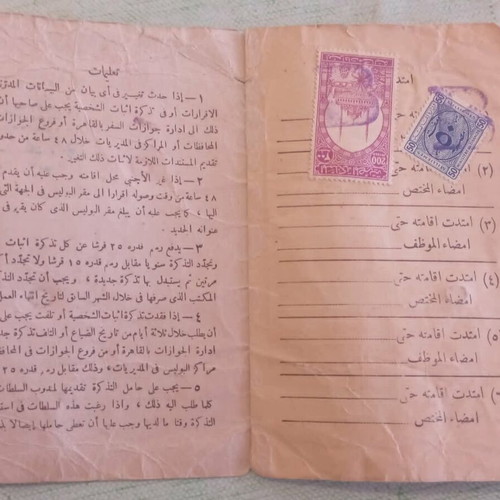 تعليمات
١ — إذا حدث تغيير فى أى بيان من البيانات المدونة
الاقرارات أو فى تذكرة اثبات الشخصية يجب على صاحبها أن
ذلك الى ادارة جوازات السفر بالقاهرة أو فروع الجوازات
المحافظات أو المراكز أو المديريات خلال ٤٨ ساعة من حدو
تقديم المستندات اللازمة لاثبات ذلك التغير.
٢ — إذا غير الأجنبي محل اقامته وجب عليه أن يقدم
٤٨ ساعة من وقت وصوله اقرارا الى مقر البوليس فى الجهة التى
اليها، كما يجب عليه أن يبلغ مقر البوليس الذى كان يقيم فى
عنوانه الجديد.
٣ — يدفع رسم قدره ٢٥ قرشا عن كل تذكرة اثبات
وتجدد التذكرة سنويا مقابل رسم قدره ١٥ قرشا ولا تجدد أ
مرتين ثم يستبدل بها تذكرة جديدة، ويجب أن تجدد التذ
المكتب الذى صرفها فى خلال الشهر السابق لتاريخ انتهاء العمل
٤ — إذا فقدت تذكرة اثبات الشخصية أو تلفت يجب ع
أن يطلب خلال ثلاثة أيام من تاريخ الضياع أو التلف تذكرة جد
ادارة الجوازات بالقاهرة أو من فروع الجوازات فى المحافظ
مراكز البوليس فى المديريات، وذلك مقابل رسم قدره ٢٥
٥ — يجب على حامل التذكرة تقديمها لمندوب السلطات
كلما طلب اليه ذلك، وإذا رغبت هذه السلطات فى استب
التذكرة وقتا ما لديها وجب عليها أن تعطى حاملها إيصالا بذ
امتد
(٢)
امضاء المختص
(٣) امتدت اقامته حتى
امضاء الموظف
(٤) امتدت اقامته حتى
امضاء المختص
٥) امتدت اقامته حتى
امضاء الموظف
امتدت اقامته حتى
امضاء المختص
200
5
5